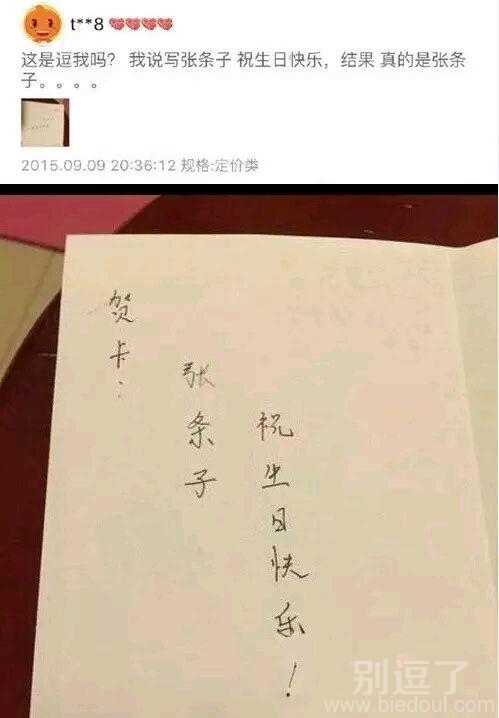 t**8
这是逗我吗？ 我说写张条子 祝生日快乐，结果 真的是张条
子。。。。
2015.09.09 20:36:12 规格:定价类
贺卡：
张条子
祝生日快乐！
别逗了
www.biedoul.com